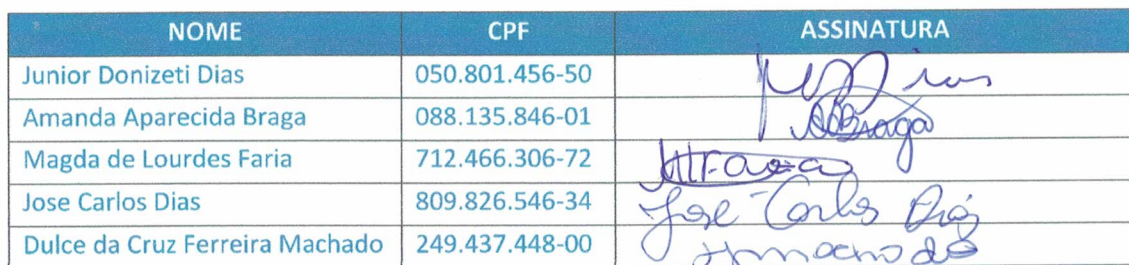 NOME CPF ASSINATURA
Junior Donizeti Dias 050.801.456-50 Dias
Amanda Aparecida Braga 088.135.846-01 ABraga
Magda de Lourdes Faria 712.466.306-72
Jose Carlos Dias 809.826.546-34 José Carlos Dias
Dulce da Cruz Ferreira Machado 249.437.448-00